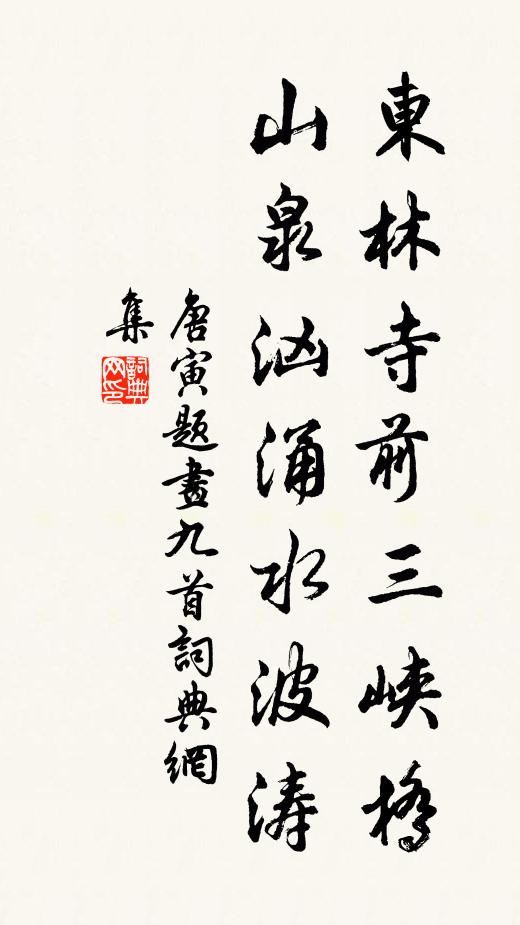 東林寺前三峽橋
山泉洶涌水波涛
唐寅題畫九首詞典網
集
詞典
网印